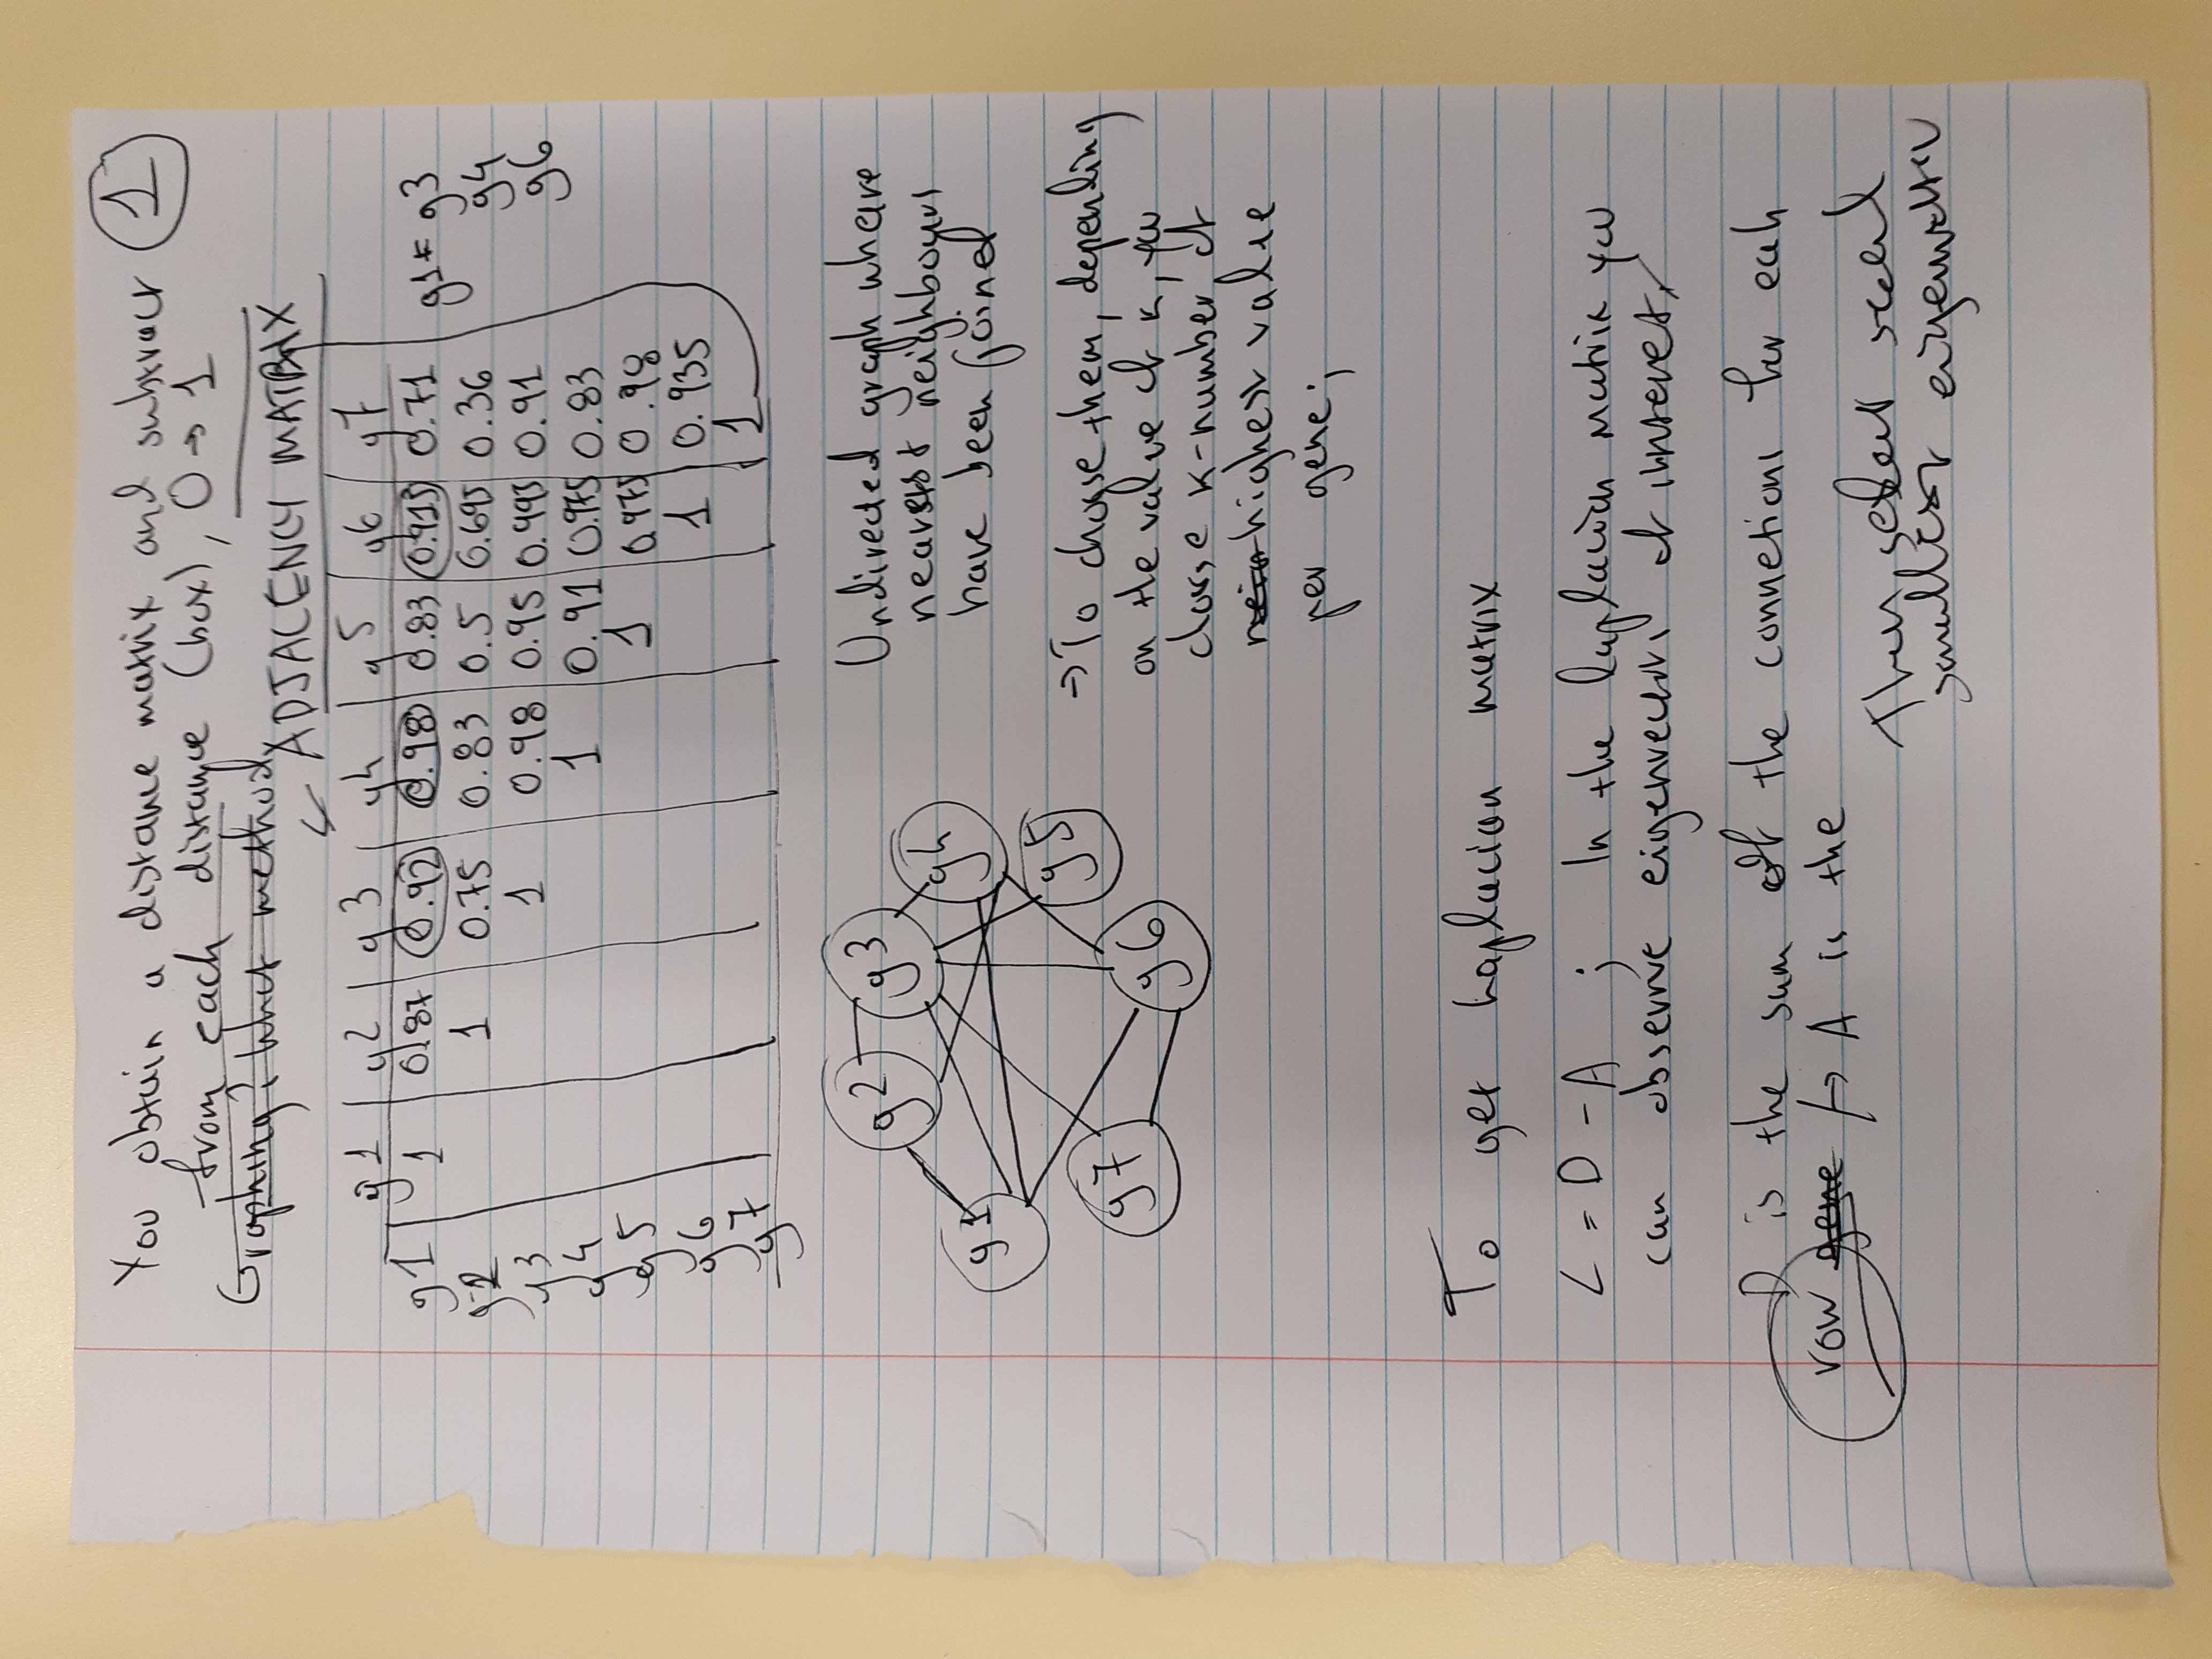 You obtain a distance matrix and subtract 1
from each distance (box), 0 → 1
Graphing? What method
ADJACENCY MATRIX
g1 g2 g3 g4 g5 g6 g7
g1 1 0.87 0.92 0.98 0.83 0.915 0.71 g1* g3
g2 1 0.75 0.83 0.5 0.695 0.36 g4
g3 1 0.98 0.95 0.995 0.91 g6
g4 1 0.91 0.975 0.83
g5 1 0.975 0.98
g6 1 0.935
g7 1
g2 g3
g4
g1
g5
g7
g6
Undirected graph where
nearest neighbours
have been joined
→ To choose them, depending
on the value of k, you
choose k-number of
highest value
per gene;
To get Laplacian matrix
L = D - A ; In the laplacian matrix you
can observe eigenvectors of interest,
D is the sum of the connetions for each
row gene → A is the
Then select
smallest